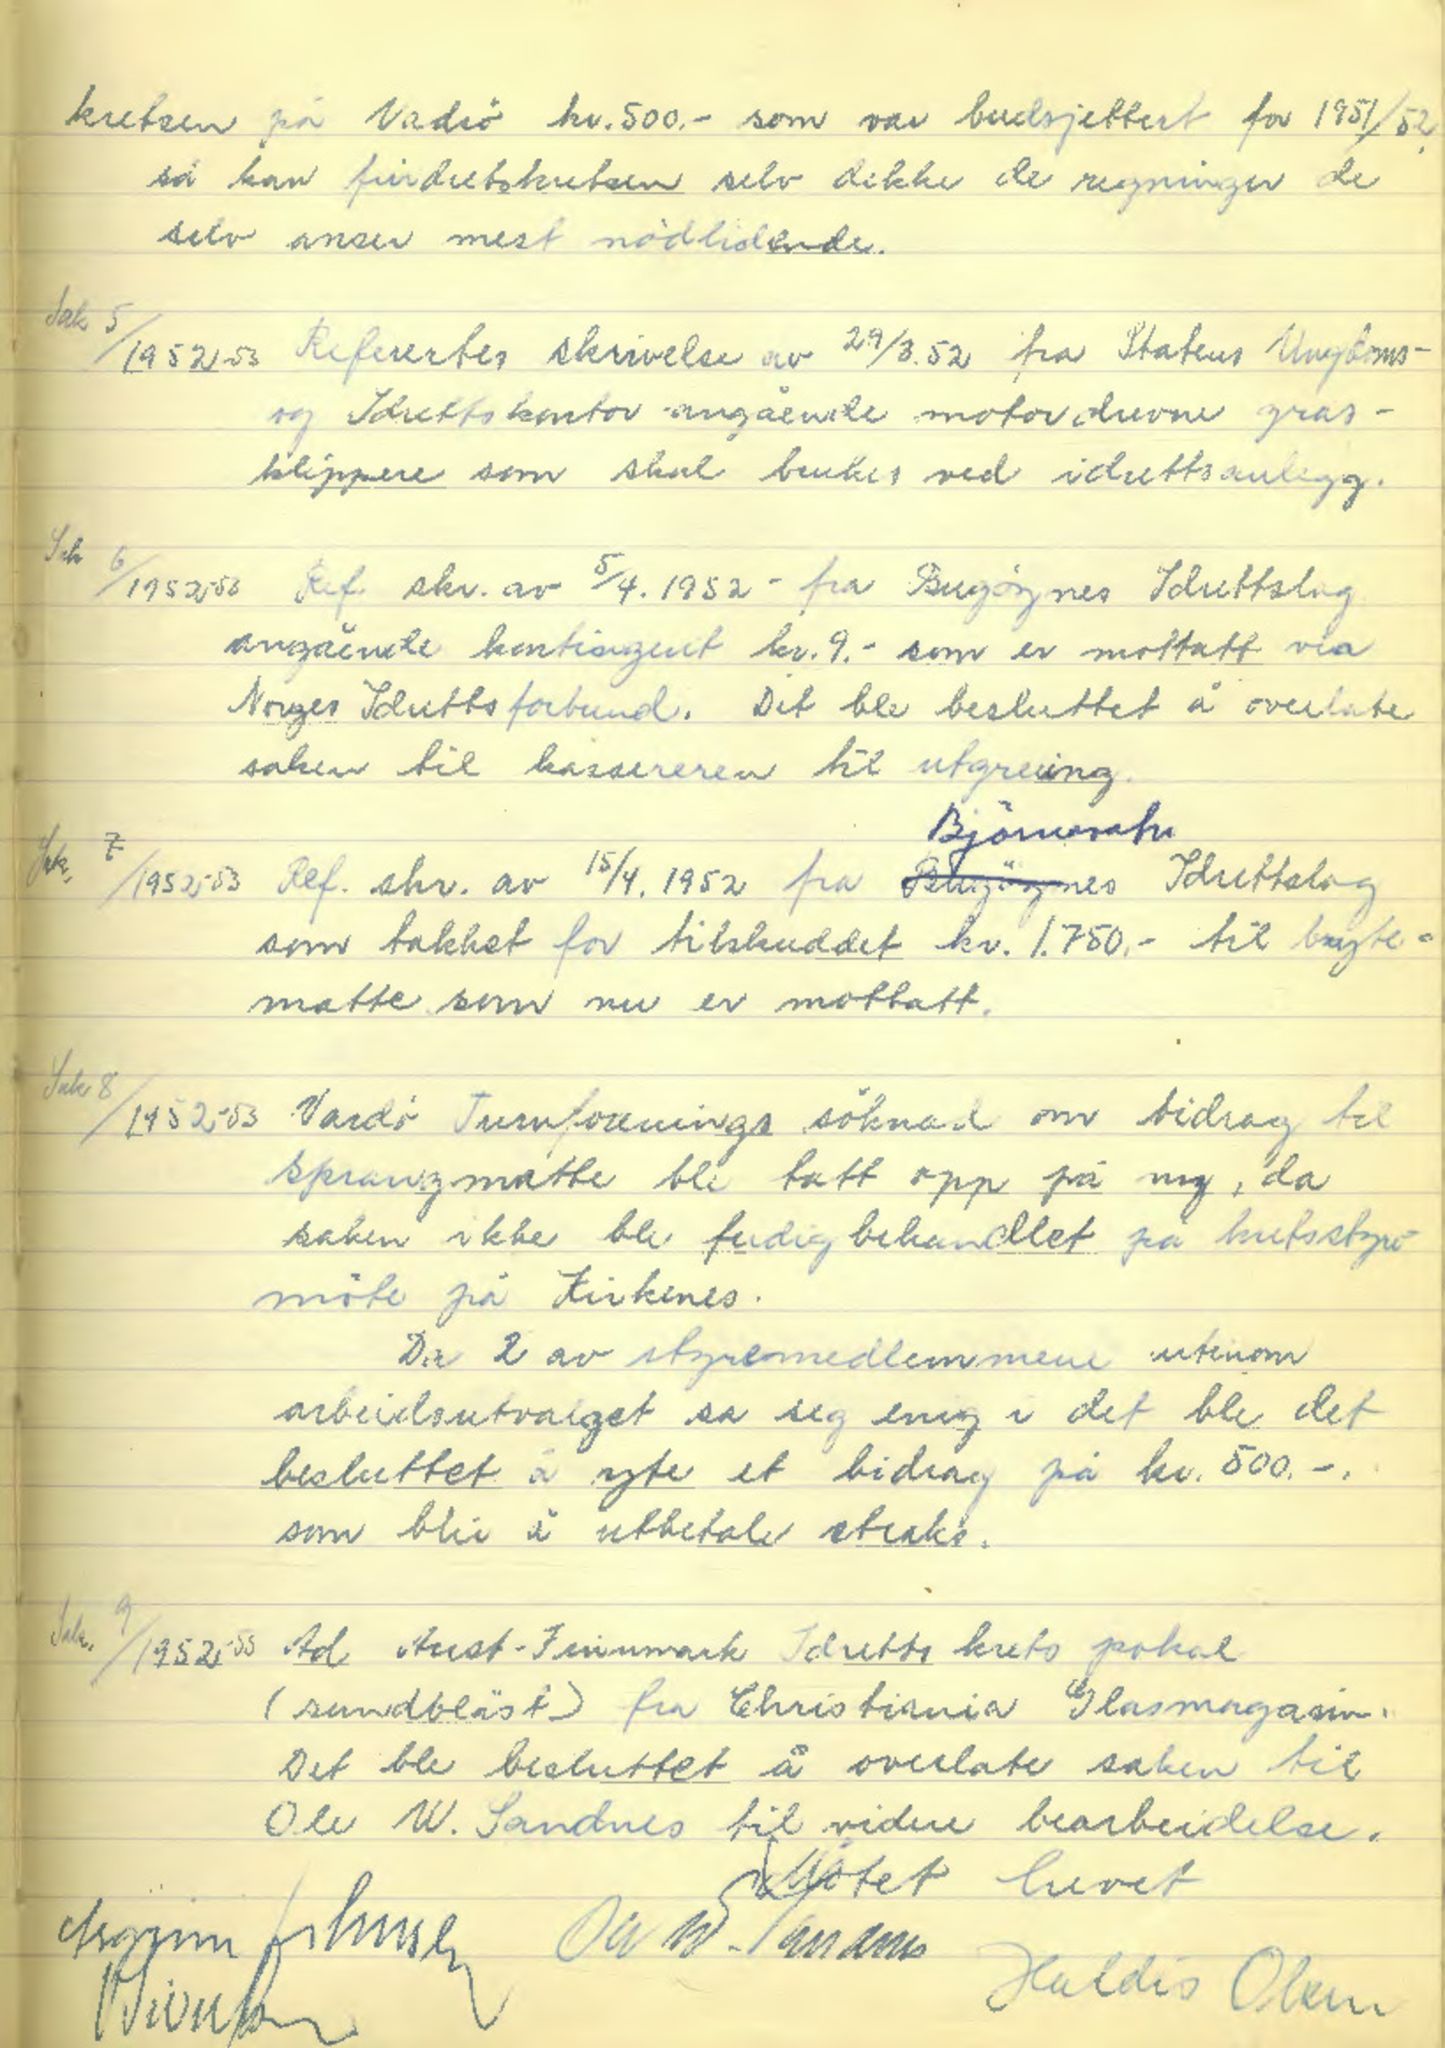 kretsen på Vadsö kr. 500.- som var budsjettert for 1951/52,
så kan friidretskretsen selv dekke de regninger de
selv anser mest nödlidende.
Sak 5/1952-53 Refertes skrivelse av 29/3.52 fra Statens Ungdoms-
og Idrettskontor angående motordrevne gras-
klippere som skal brukes ved idrettsanlegg.
Sak 6/1952-53 Ref. skr. av 5/4. 1952 - fra Bugöynes Idrettslag
angående kontingent kr. 9.- som er mottatt via
Norges Idrettsforbund. Det ble besluttet å overlate
saken til kassereren til utgreiing.
Björnevatn
Sak. 7/1952-53 Ref. skr. av 15/4. 1952 fra Bugöynes Idrettslag
som takket for tilskuddet kr. 1.750.- til bryte-
matte som nu er mottatt.
Sak 8/1952-53 Vardö Turnforenings söknad om bidrag til
sprangmatte ble tatt opp på ny, da
saken ikke ble ferdigbehandlet på kretsstyre
möte på Kirkenes.
Da 2 av styremedlemmene utenom
arbeidsutvalget sa seg enig i det ble det
besluttet å yte et bidrag på kr. 500.-.
som blir å utbetale straks.
Sak. 9/1952-53 Ad Aust-Finnmark Idretts krets pokal
(sandbläst) fra Christiania Glasmagasin.
Det ble besluttet å overlate saken til
Ole W. Sandnes til videre bearbeidelse.
Mötet hevet
Ole W. Sandnes
Haldis Olsen